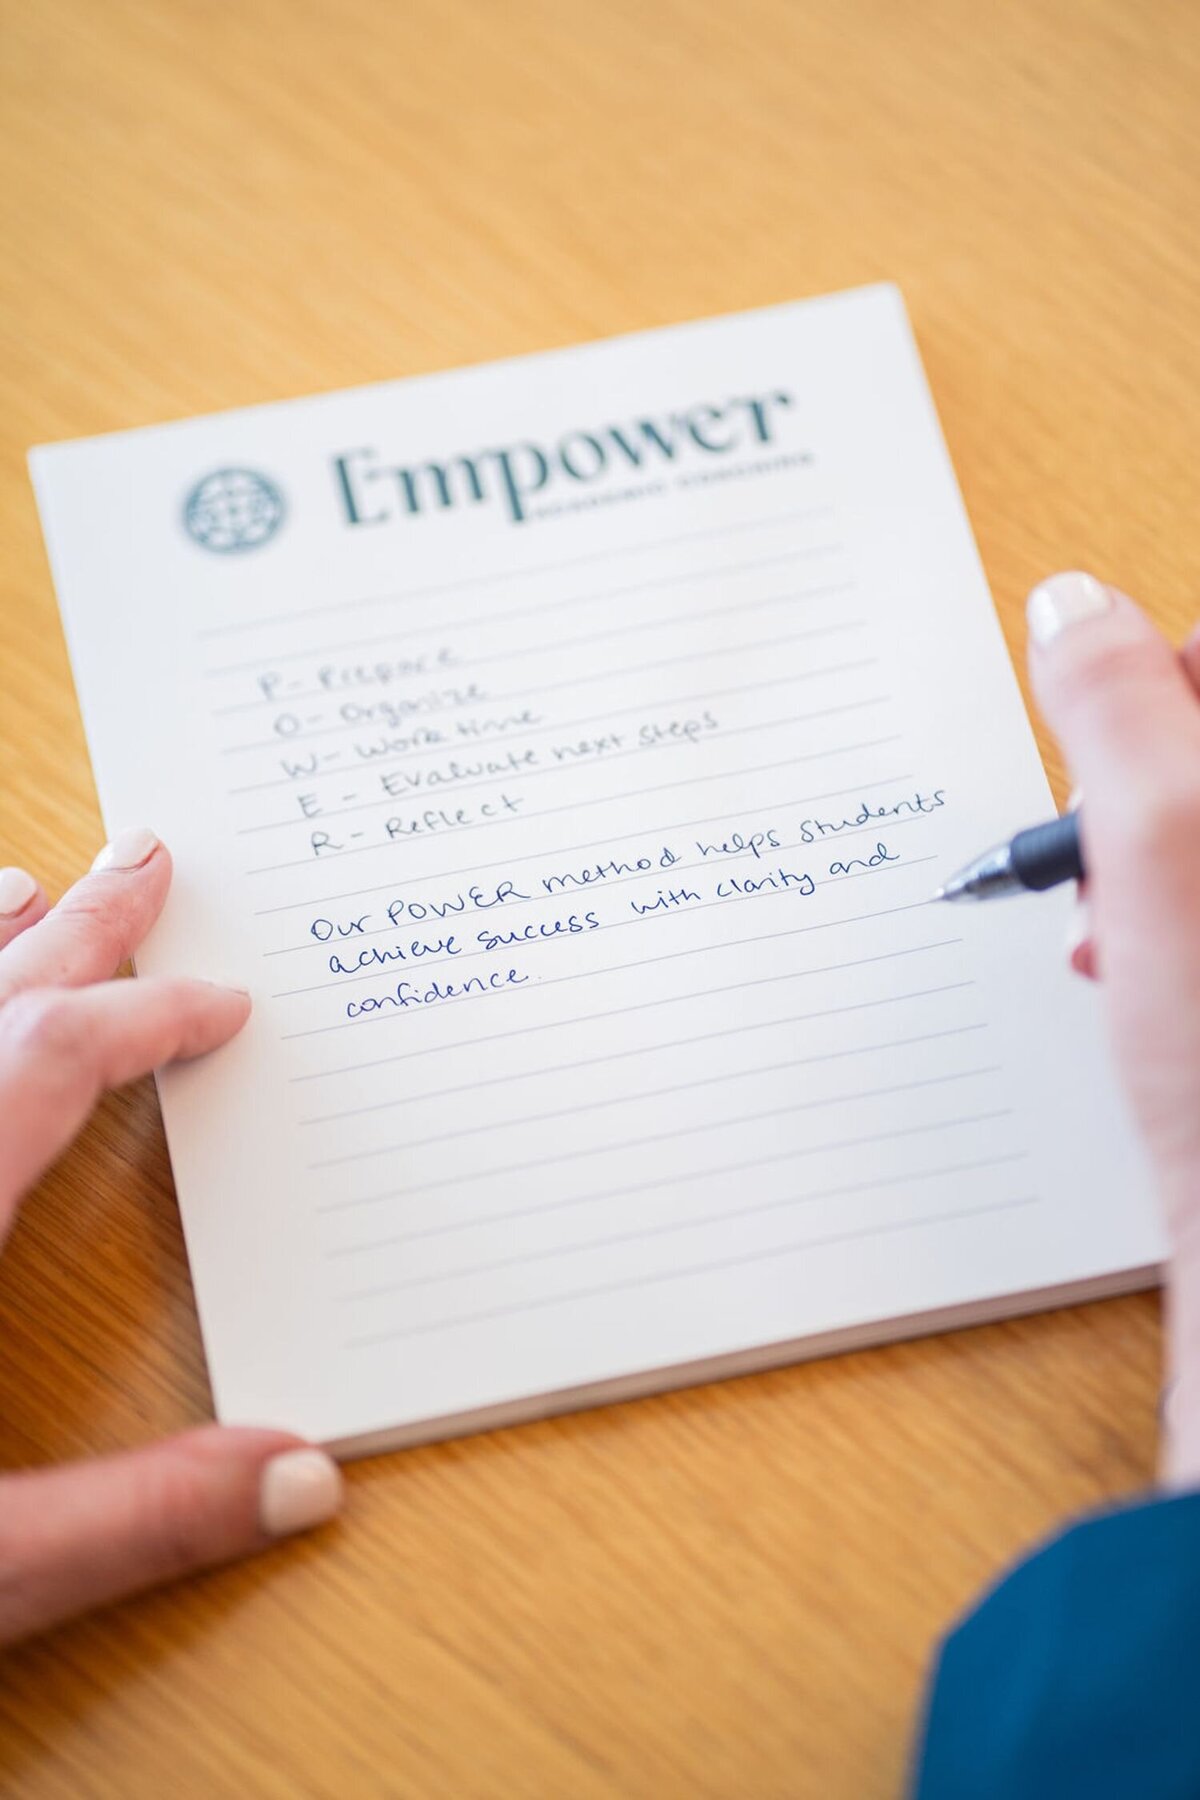 Empower
ACADEMIC COACHING
P - Prepare
O - Organize
W - Work time
E - Evaluate next steps
R - Reflect
Our POWER method helps students
achieve success with clarity and
confidence.